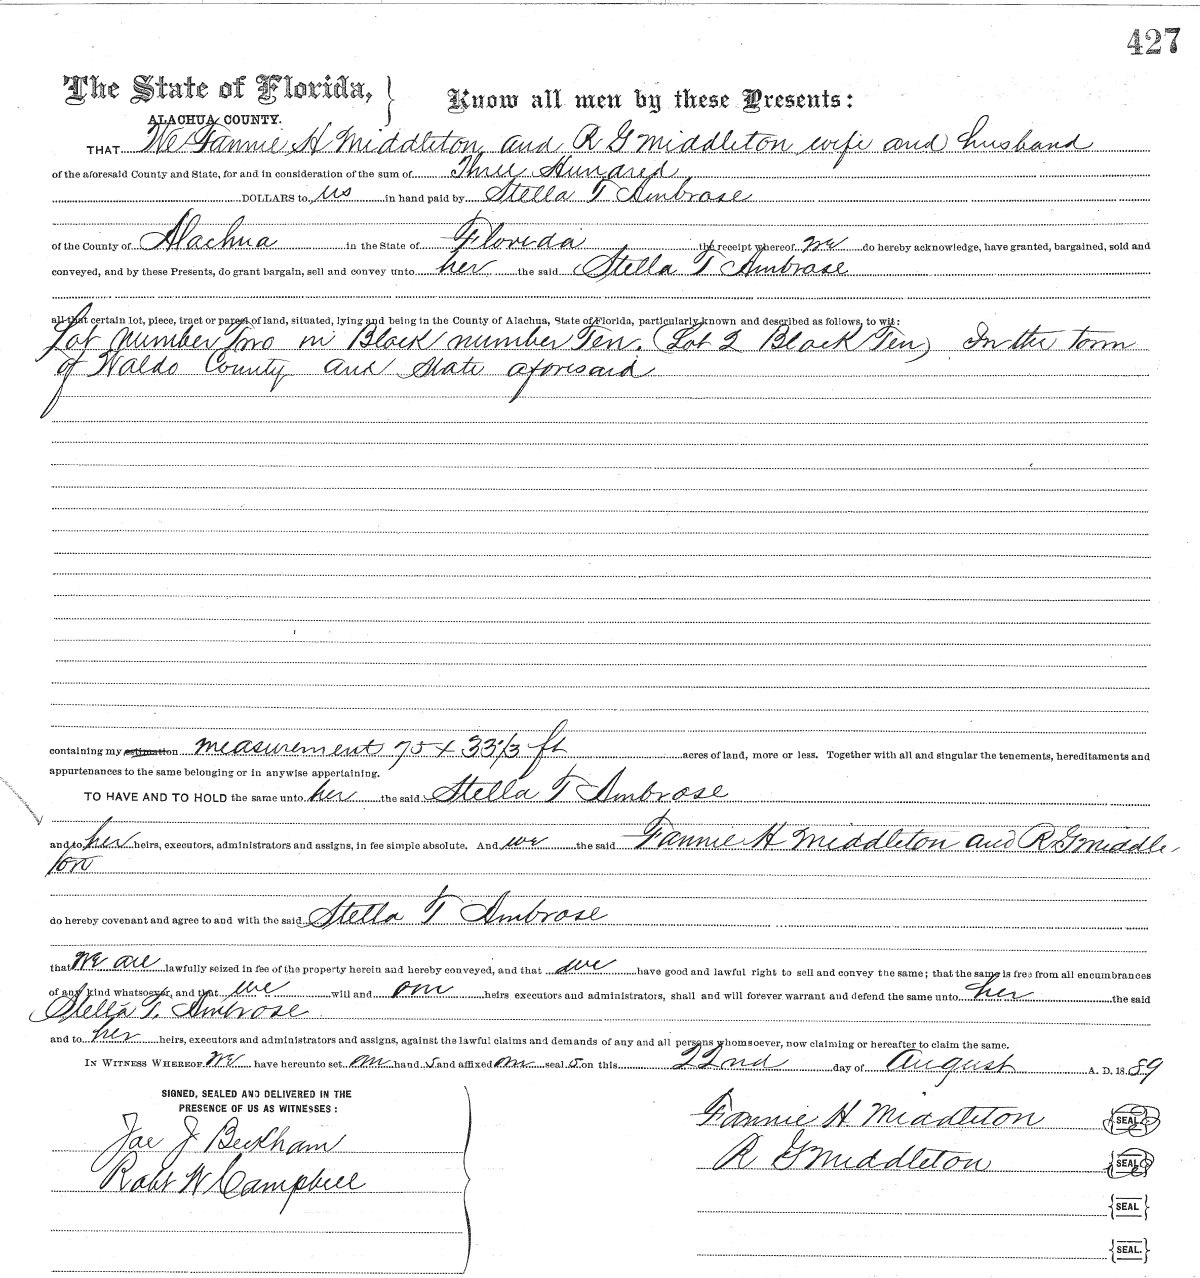 427
The State of Florida,
ALACHUA COUNTY.
Know all men by these Presents:
THAT We Fannie H Middleton and R G Middleton wife and husband
of the aforesaid County and State, for and in consideration of the sum of Three Hundred
DOLLARS to us in hand paid by Stella T Ambrose
of the County of Alachua in the State of Florida the receipt whereof we do hereby acknowledge, have granted, bargained, sold and
conveyed, and by these Presents, do grant bargain, sell and convey unto her the said Stella T Ambrose
all that certain lot, piece, tract or parcel of land, situated, lying and being in the County of Alachua, State of Florida, particularly known and described as follows, to wit:
Lot number Two in Block number Ten. (Lot 2 Block Ten) In the town
of Waldo County and State aforesaid
containing my estimation measurement 75 x 33 1/3 ft acres of land, more or less. Together with all and singular the tenements, hereditaments and
appurtenances to the same belonging or in anywise appertaining.
TO HAVE AND TO HOLD the same unto her the said Stella T Ambrose
and to her heirs, executors, administrators and assigns, in fee simple absolute. And we the said Fannie H Middleton and R G Middle
ton
do hereby covenant and agree to and with the said Stella T Ambrose
that we are lawfully seized in fee of the property herein and hereby conveyed, and that we have good and lawful right to sell and convey the same; that the same is free from all encumbrances
of any kind whatsoever, and that we will and our heirs executors and administrators, shall and will forever warrant and defend the same unto her the said
Stella T. Ambrose
and to her heirs, executors and administrators and assigns, against the lawful claims and demands of any and all persons whomsoever, now claiming or hereafter to claim the same.
IN WITNESS WHEREOF we have hereunto set our hand s and affixed our seal s on this 22nd day of August A. D. 1889
SIGNED, SEALED AND DELIVERED IN THE
PRESENCE OF US AS WITNESSES:
Joe J Beckham
Robt W Campbell
Fannie H Middleton SEAL
R G Middleton SEAL
SEAL
SEAL.